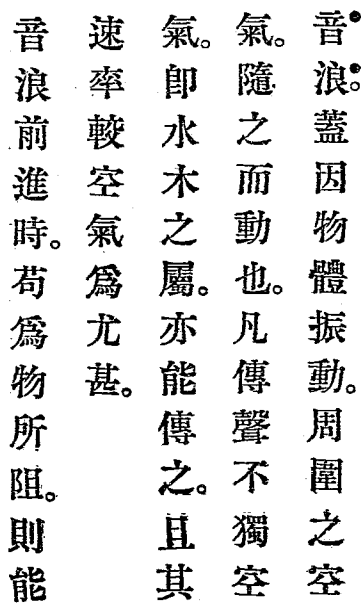 音浪。蓋因物體振動。周圍之空
氣。隨之而動也。凡傳聲不獨空
氣。卽水木之屬。亦能傳之。且其
速率較空氣爲尤甚。
音浪前進時。苟爲物所阻。則能